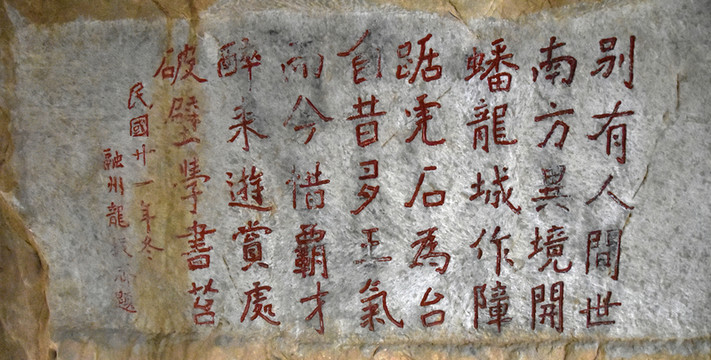 别有人間世
南方異境開
蟠龍城作障
踞虎石為台
自昔多王氣
而今惜霸才
醉来遊賞處
破壁學書苔
民國廿一年冬
融州龍題